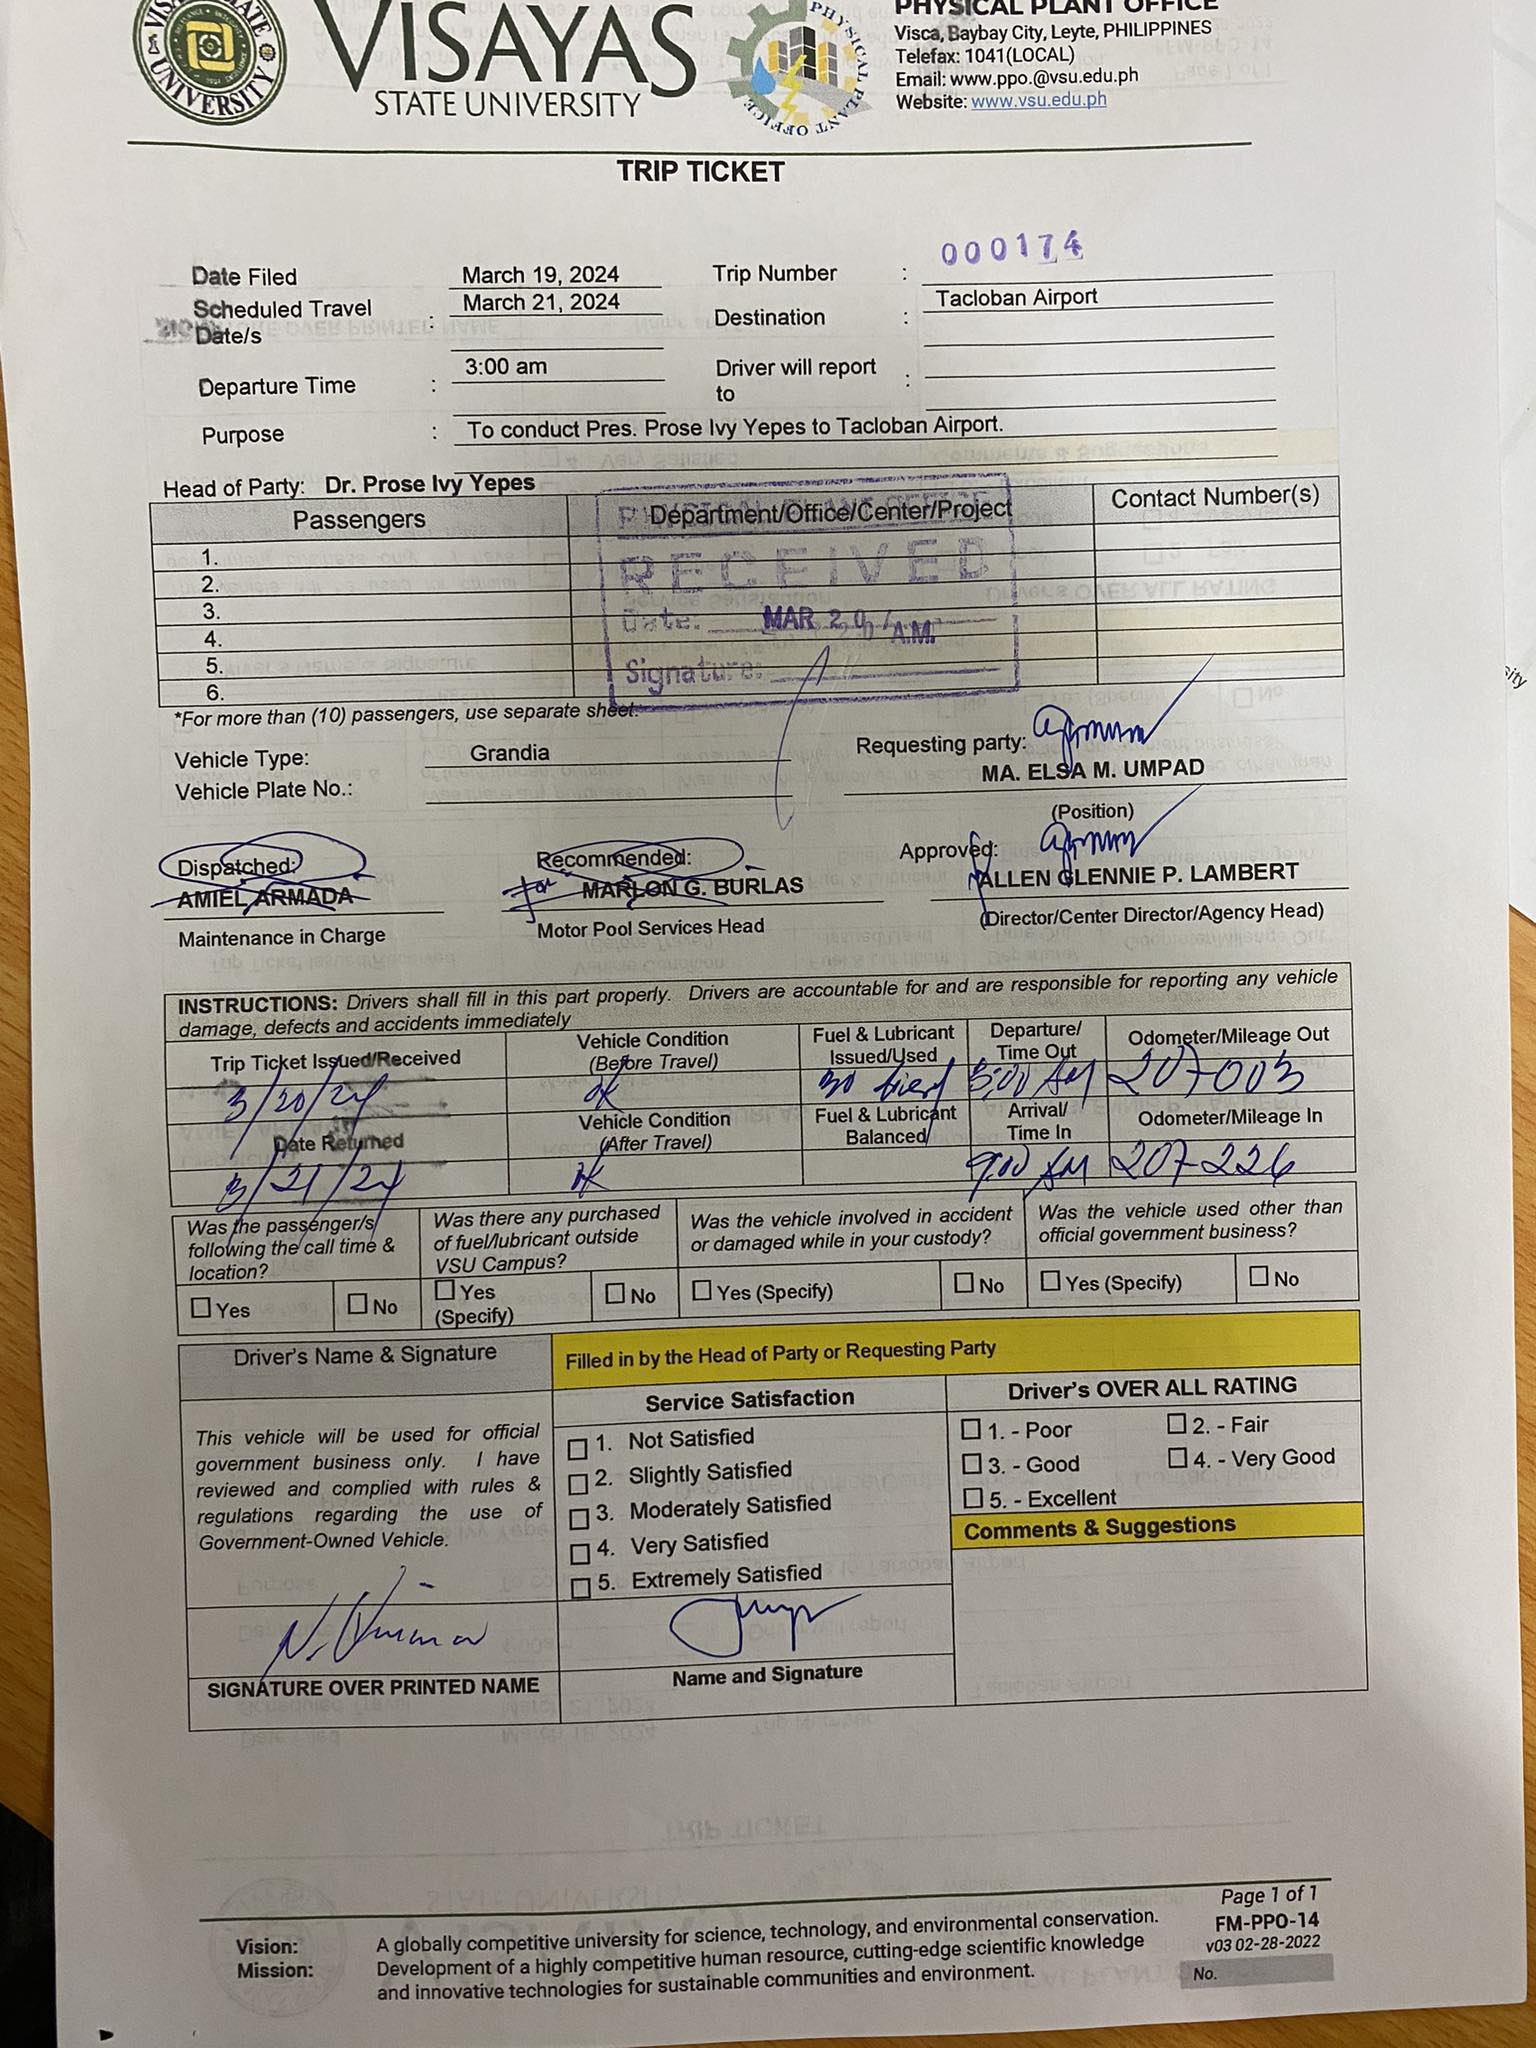 VISAYAS STATE UNIVERSITY
VISAYAS
STATE UNIVERSITY
PHYSICAL PLANT OFFICE
PHYSICAL PLANT OFFICE
Visca, Baybay City, Leyte, PHILIPPINES
Telefax: 1041(LOCAL)
Email: www.ppo.@vsu.edu.ph
Website: www.vsu.edu.ph
TRIP TICKET
Date Filed March 19, 2024 Trip Number : 000174
Scheduled Travel Date/s : March 21, 2024 Destination : Tacloban Airport
Departure Time : 3:00 am Driver will report to :
Purpose : To conduct Pres. Prose Ivy Yepes to Tacloban Airport.
Head of Party: Dr. Prose Ivy Yepes
Passengers Department/Office/Center/Project Contact Number(s)
1.
2.
3.
4.
5.
6.
PHYSICAL PLANT OFFICE
RECEIVED
Date: MAR 20 A.M.
Signature:
*For more than (10) passengers, use separate sheet.
Vehicle Type: Grandia
Vehicle Plate No.:
Requesting party:
MA. ELSA M. UMPAD
(Position)
Dispatched: Recommended: Approved:
AMIEL ARMADA for MARLON G. BURLAS ALLEN GLENNIE P. LAMBERT
Maintenance in Charge Motor Pool Services Head (Director/Center Director/Agency Head)
INSTRUCTIONS: Drivers shall fill in this part properly. Drivers are accountable for and are responsible for reporting any vehicle
damage, defects and accidents immediately
Trip Ticket Issued/Received Vehicle Condition (Before Travel) Fuel & Lubricant Issued/Used Departure/ Time Out Odometer/Mileage Out
3/20/24 ok 30 3:00 AM 207-003
Date Returned Vehicle Condition (After Travel) Fuel & Lubricant Balanced Arrival/ Time In Odometer/Mileage In
3/21/24 ok 9:00 AM 207-226
Was the passenger/s following the call time & location? Was there any purchased of fuel/lubricant outside VSU Campus? Was the vehicle involved in accident or damaged while in your custody? Was the vehicle used other than official government business?
Yes No Yes (Specify) No Yes (Specify) No Yes (Specify) No
Driver's Name & Signature
Filled in by the Head of Party or Requesting Party
This vehicle will be used for official
government business only. I have
reviewed and complied with rules &
regulations regarding the use of
Government-Owned Vehicle.
SIGNATURE OVER PRINTED NAME
Service Satisfaction
1. Not Satisfied
2. Slightly Satisfied
3. Moderately Satisfied
4. Very Satisfied
5. Extremely Satisfied
Name and Signature
Driver's OVER ALL RATING
1. - Poor 2. - Fair
3. - Good 4. - Very Good
5. - Excellent
Comments & Suggestions
Page 1 of 1
FM-PPO-14
v03 02-28-2022
No.
Vision: A globally competitive university for science, technology, and environmental conservation.
Mission: Development of a highly competitive human resource, cutting-edge scientific knowledge
and innovative technologies for sustainable communities and environment.